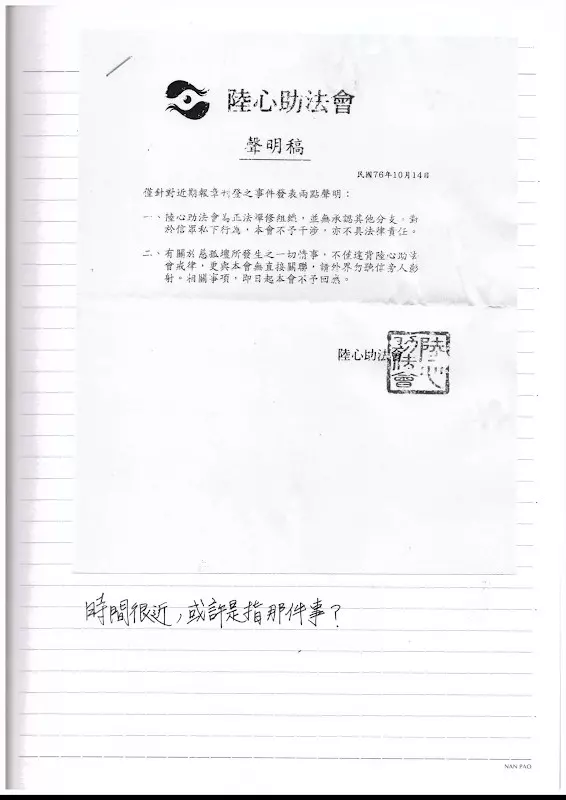 陸心助法會
聲明稿
民國76年10月14日
僅針對近期報章刊登之事件發表兩點聲明：
一、陸心助法會為正法禪修組織，並無承認其他分支。對
於信眾私下行為，本會不予干涉，亦不具法律責任。
二、有關於慈孤壇所發生之一切情事，不僅違背陸心助法
會戒律，更與本會無直接關聯，請外界勿聽信旁人影
射。相關事項，即日起本會不予回應。
陸心助法會
陸心助法會
時間很近，或許是指那件事？
NAN PAO